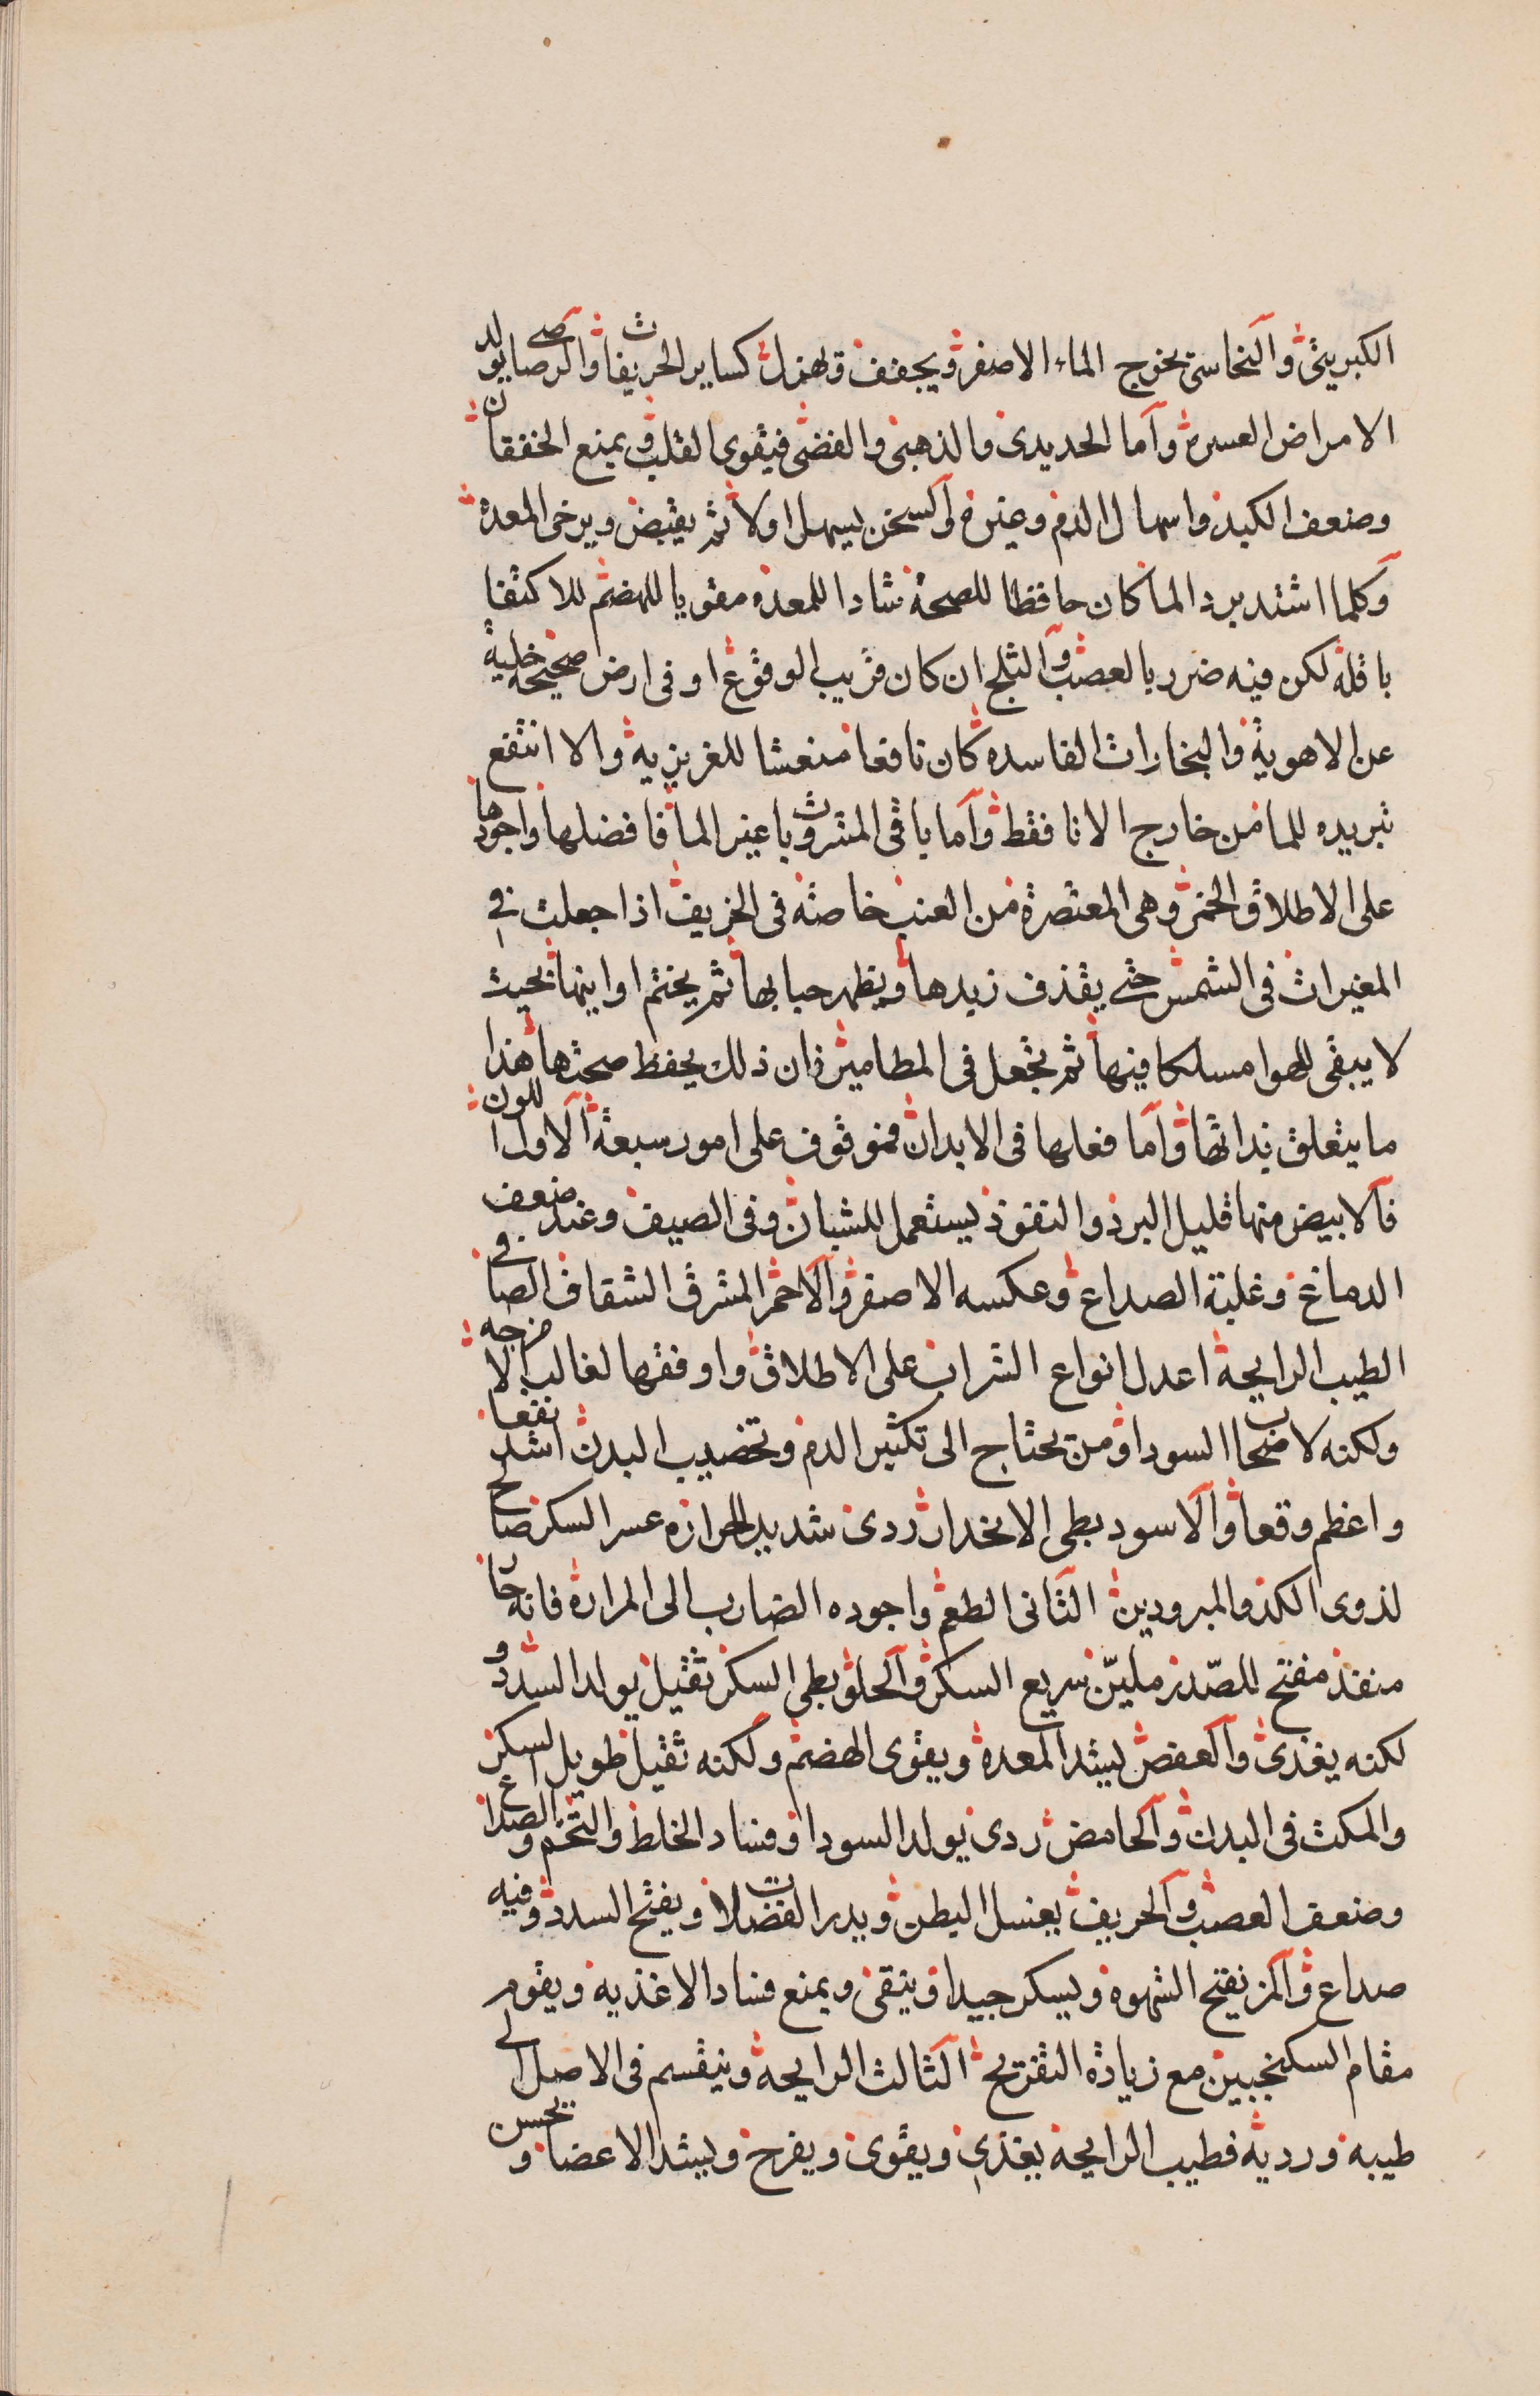 الكبريتى والنحاسى يخرج الماء الاصفر ويجفف ويهزل كساير الحريفات والرصاصى يولد
الامراض العسرة واما الحديدى والذهبى والفضى فيقوى القلب ويمنع الخفقان
وضعف الكبد واسهال الدم وغيره والسخن يسهل اولا ثم يقبض ويرخى المعدة
وكلما اشتد برد الما كان حافظا للصحة شادا للمعده مقويا للهضم للاكتفا
باقله لكن فيه ضرر بالعصب والثلج ان كان قريب الوقوع او فى ارض صحيحة خلية
عن الاهوية والبخارات الفاسده كان نافعا منعشا للغريزية والا انتفع
بتبريده للما من خارج الانا فقط واما باقى المشروبات غير الما فافضلها واجودها
على الاطلاق الخمر وهى المعتصرة من العنب خاصة فى الخريف اذا جعلت فى
المغيرات فى الشمس حتى يقذف زبدها ويظهر حبابها ثم يختم اوانيها بحيث
لا يبقى للهوا مسلكا فيها ثم تجعل فى المطامير فان ذلك يحفظ صحتها هذا
ما يتعلق بذاتها واما فعلها فى الابدان فموقوف على امور سبعة الاول اللون
فالابيض منها قليل البرد والنفوذ يستعمل للشبان وفى الصيف وعند ضعف
الدماغ وغلبة الصداع وعكسه الاصفر والاحمر المشرق الشفاف الصافى
الطيب الرايحة اعدل انواع الشراب على الاطلاق واوفقها لغالب الامزجه
ولكنه لاصحاب السودا ومن يحتاج الى تكثير الدم وتخصيب البدن اشد نفعا
واعظم وقعا والاسود بطى الانحدار ردى شديد الحراره عسر السكر صالح
لذوى الكد والمبرودين الثانى الطعم واجوده الضارب الى المرارة فانه حار
منفذ مفتح للصدر مليّن سريع السكر والحلو بطى السكر ثقيل يولد السدد و
لكنه يغذى والعفص يشد المعدة ويقوى الهضم ولكنه ثقيل طويل السكر
والمكث فى البدن والحامض ردى يولد السودا وفساد الخلط والتخم والصداع
وضعف العصب والحريف يغسل البطن ويدر الفضلات ويفتح السدد وفيه
صداع والمز يفتح الشهوه ويسكر جيدا وينقى ويمنع فساد الاغذيه ويقوم
مقام السكنجبين مع زيادة التفريح الثالث الرايحة وينقسم فى الاصل الى
طيبه ورديه فطيب الرايحة يغذى ويقوى ويفرح ويشد الاعضا ويحسن